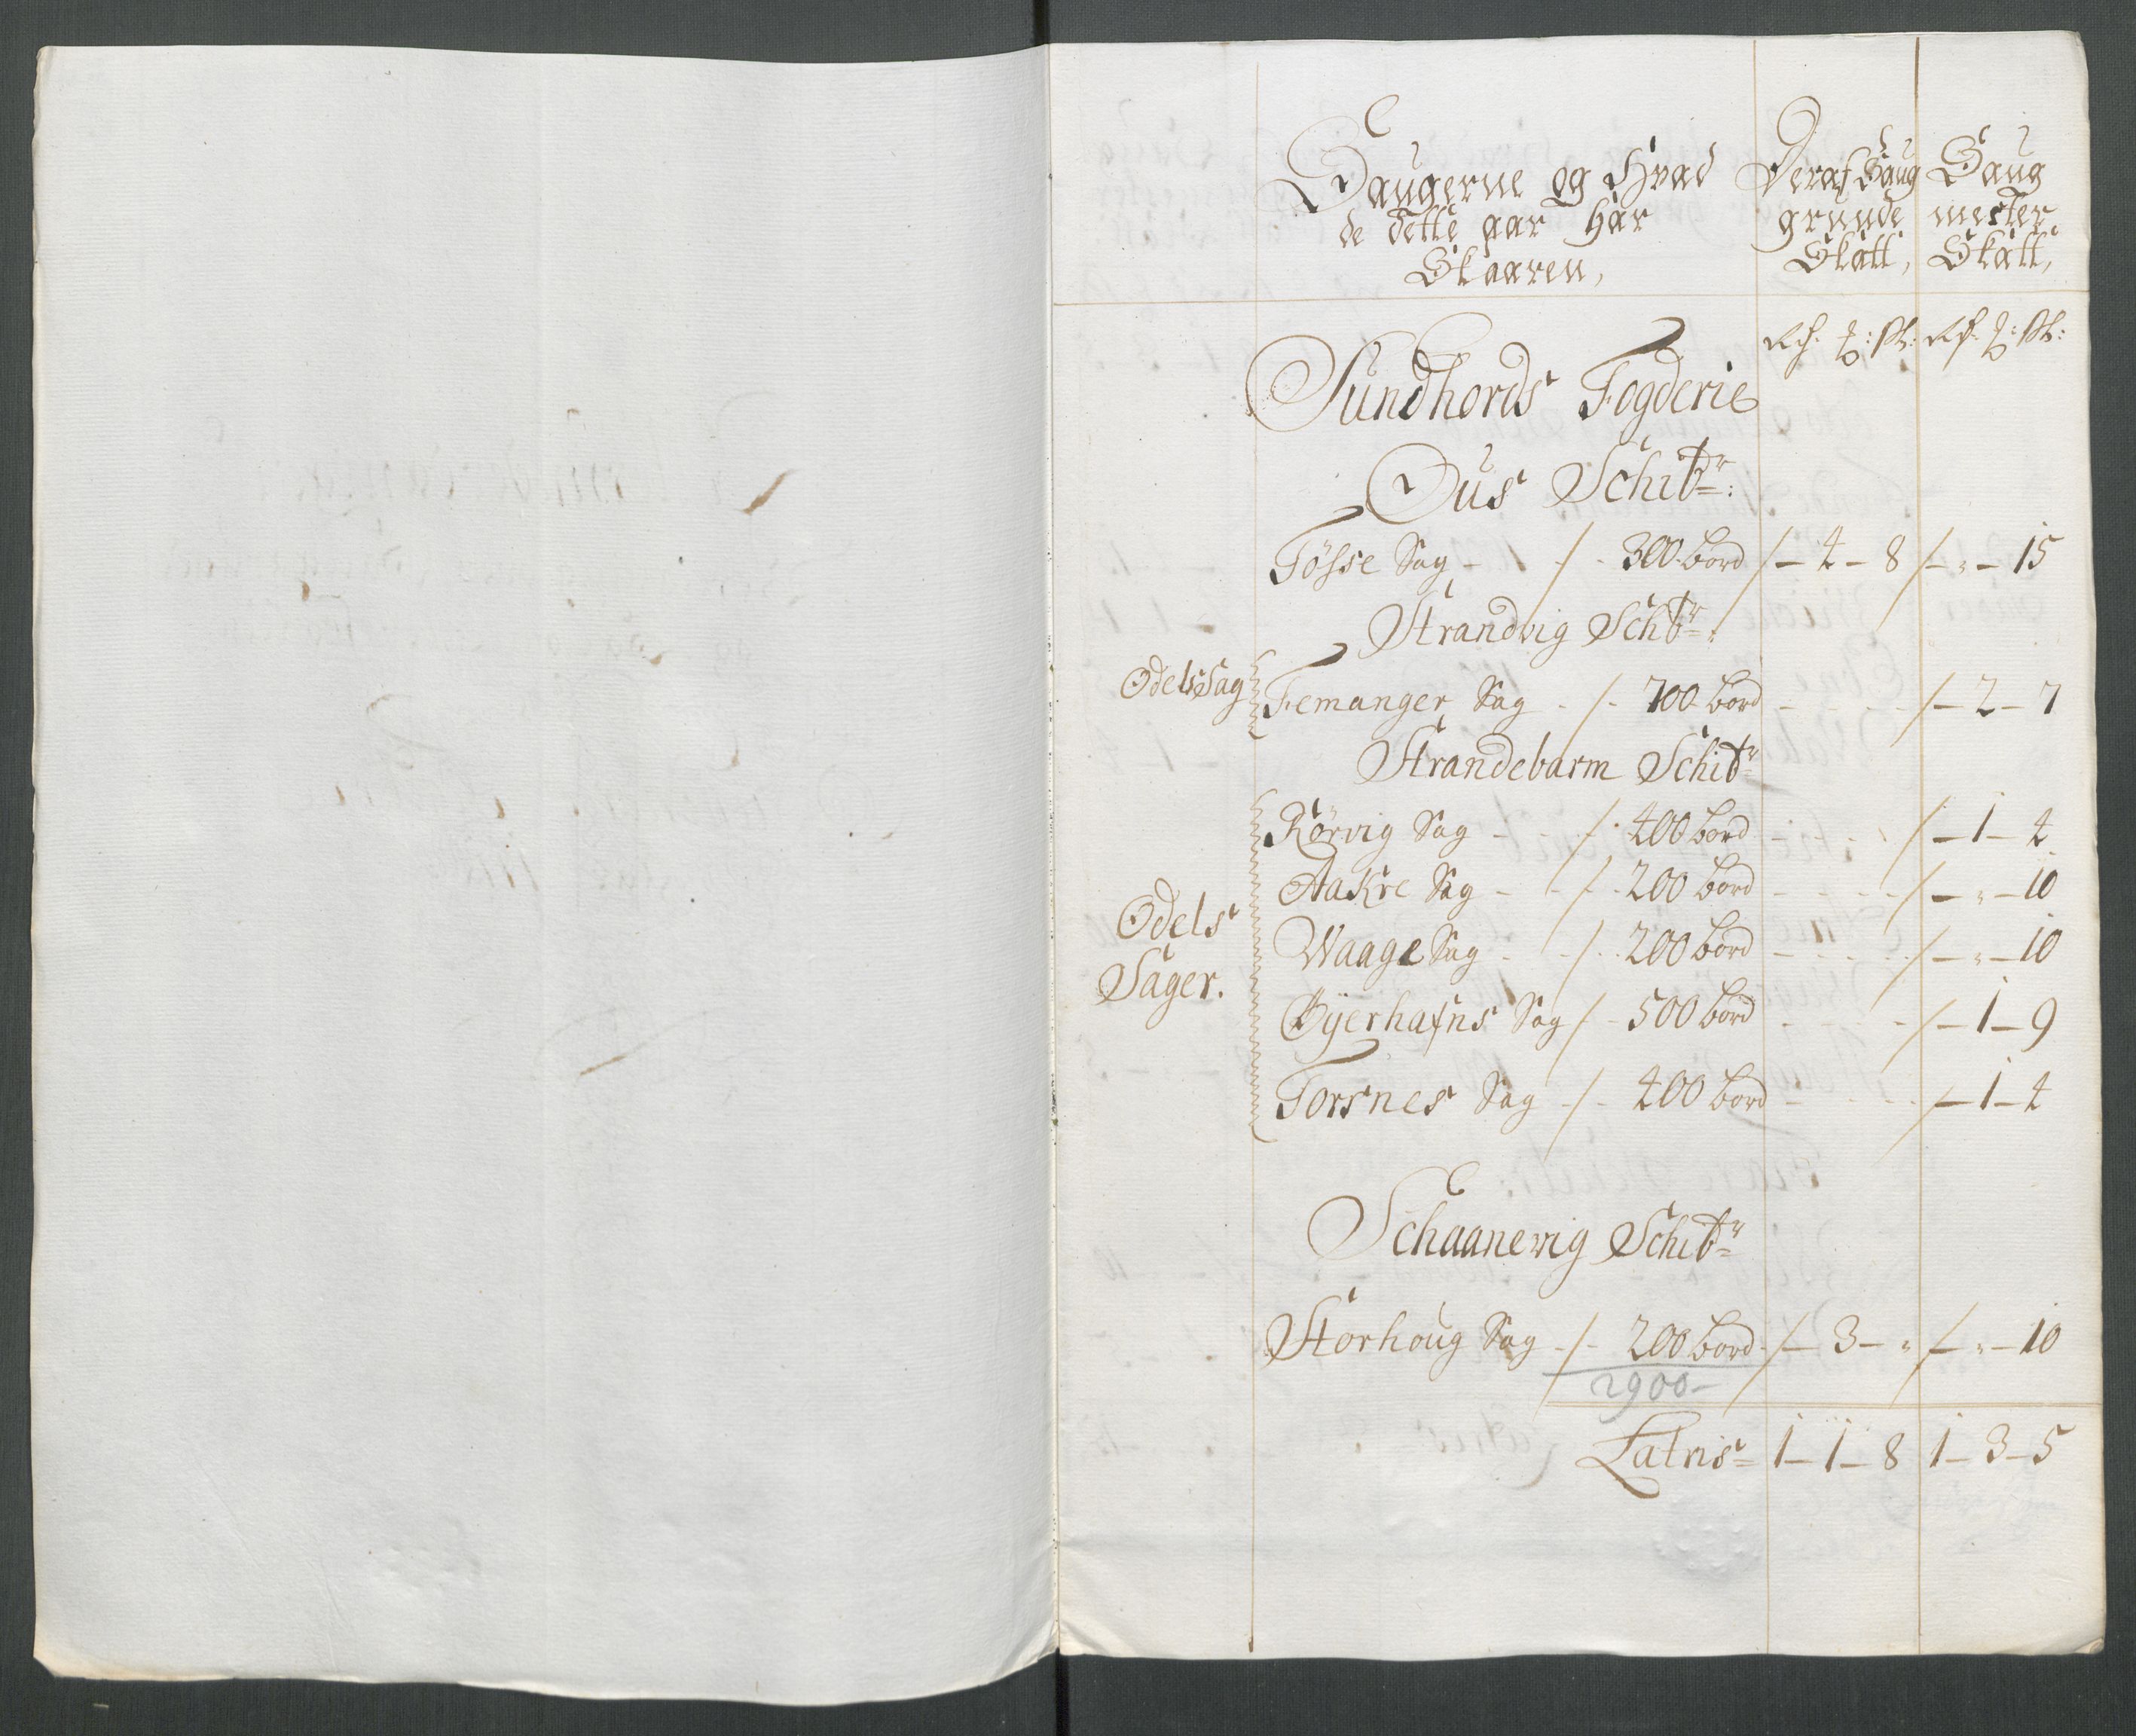 Saugerne og Hvad
de dette aar Har
Skaaren,
Deraf Saug
grunde
Skatt,
Saug
mester
Skatt,
Sundhords Fogderie
Ous Schibr:
Tösse Sag - / - 300 bord /- 4 - 8 /- " - 15
Strandvig Schbr:
OdelsSag Femanger Sag - / - 700 bord - - - /- 2 - 7
Strandebarm Schibr
Rörvig Sag - - / - 400 bord - - - /- 1 - 4
Aakre Sag - - / - 200 bord - - - /- " - 10
Odels
Sager.
Waage Sag - - / - 200 bord - - - /- " - 10
Øyerhafns Sag / - 500 bord - - - /- 1 - 9
Torsnes Sag - / - 400 bord - - - /- 1 - 4
Schaanevig Schibr
Storhoug Sag - / - 200 bord - /- 3 - " /- " - 10
2900-
Latris = 1 - 1 - 8 1 - 3 - 5